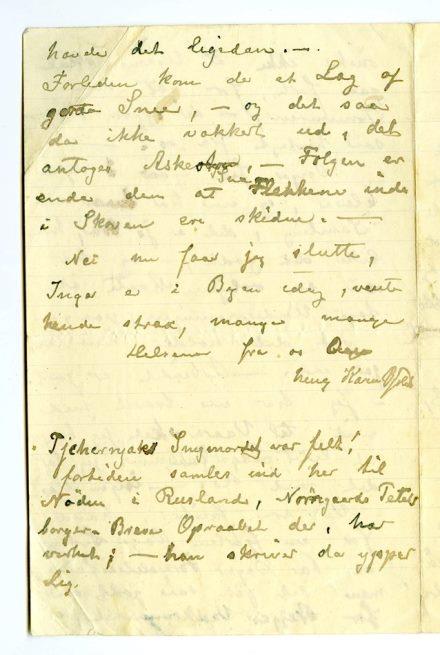 havde det ligedan. —.
Forleden kom da et Lag af
Snee, — og det saa
da ikke vakkert ud, det
antages Aske — Følgen er
enda den at Snee Flekkene inde
i Skoven ere skidne. —
Nei nu faar jeg slutte,
Inga er i Byen idag, vente
hende strax, mange mange
Helsener fra os
Karen
Snigmord var fælt!
forliden samles ind her til
Nöden i Rusland, Nörregaards Peters
borger Breve Opraabet der, har
virket; — han skriver da ypper
lig.